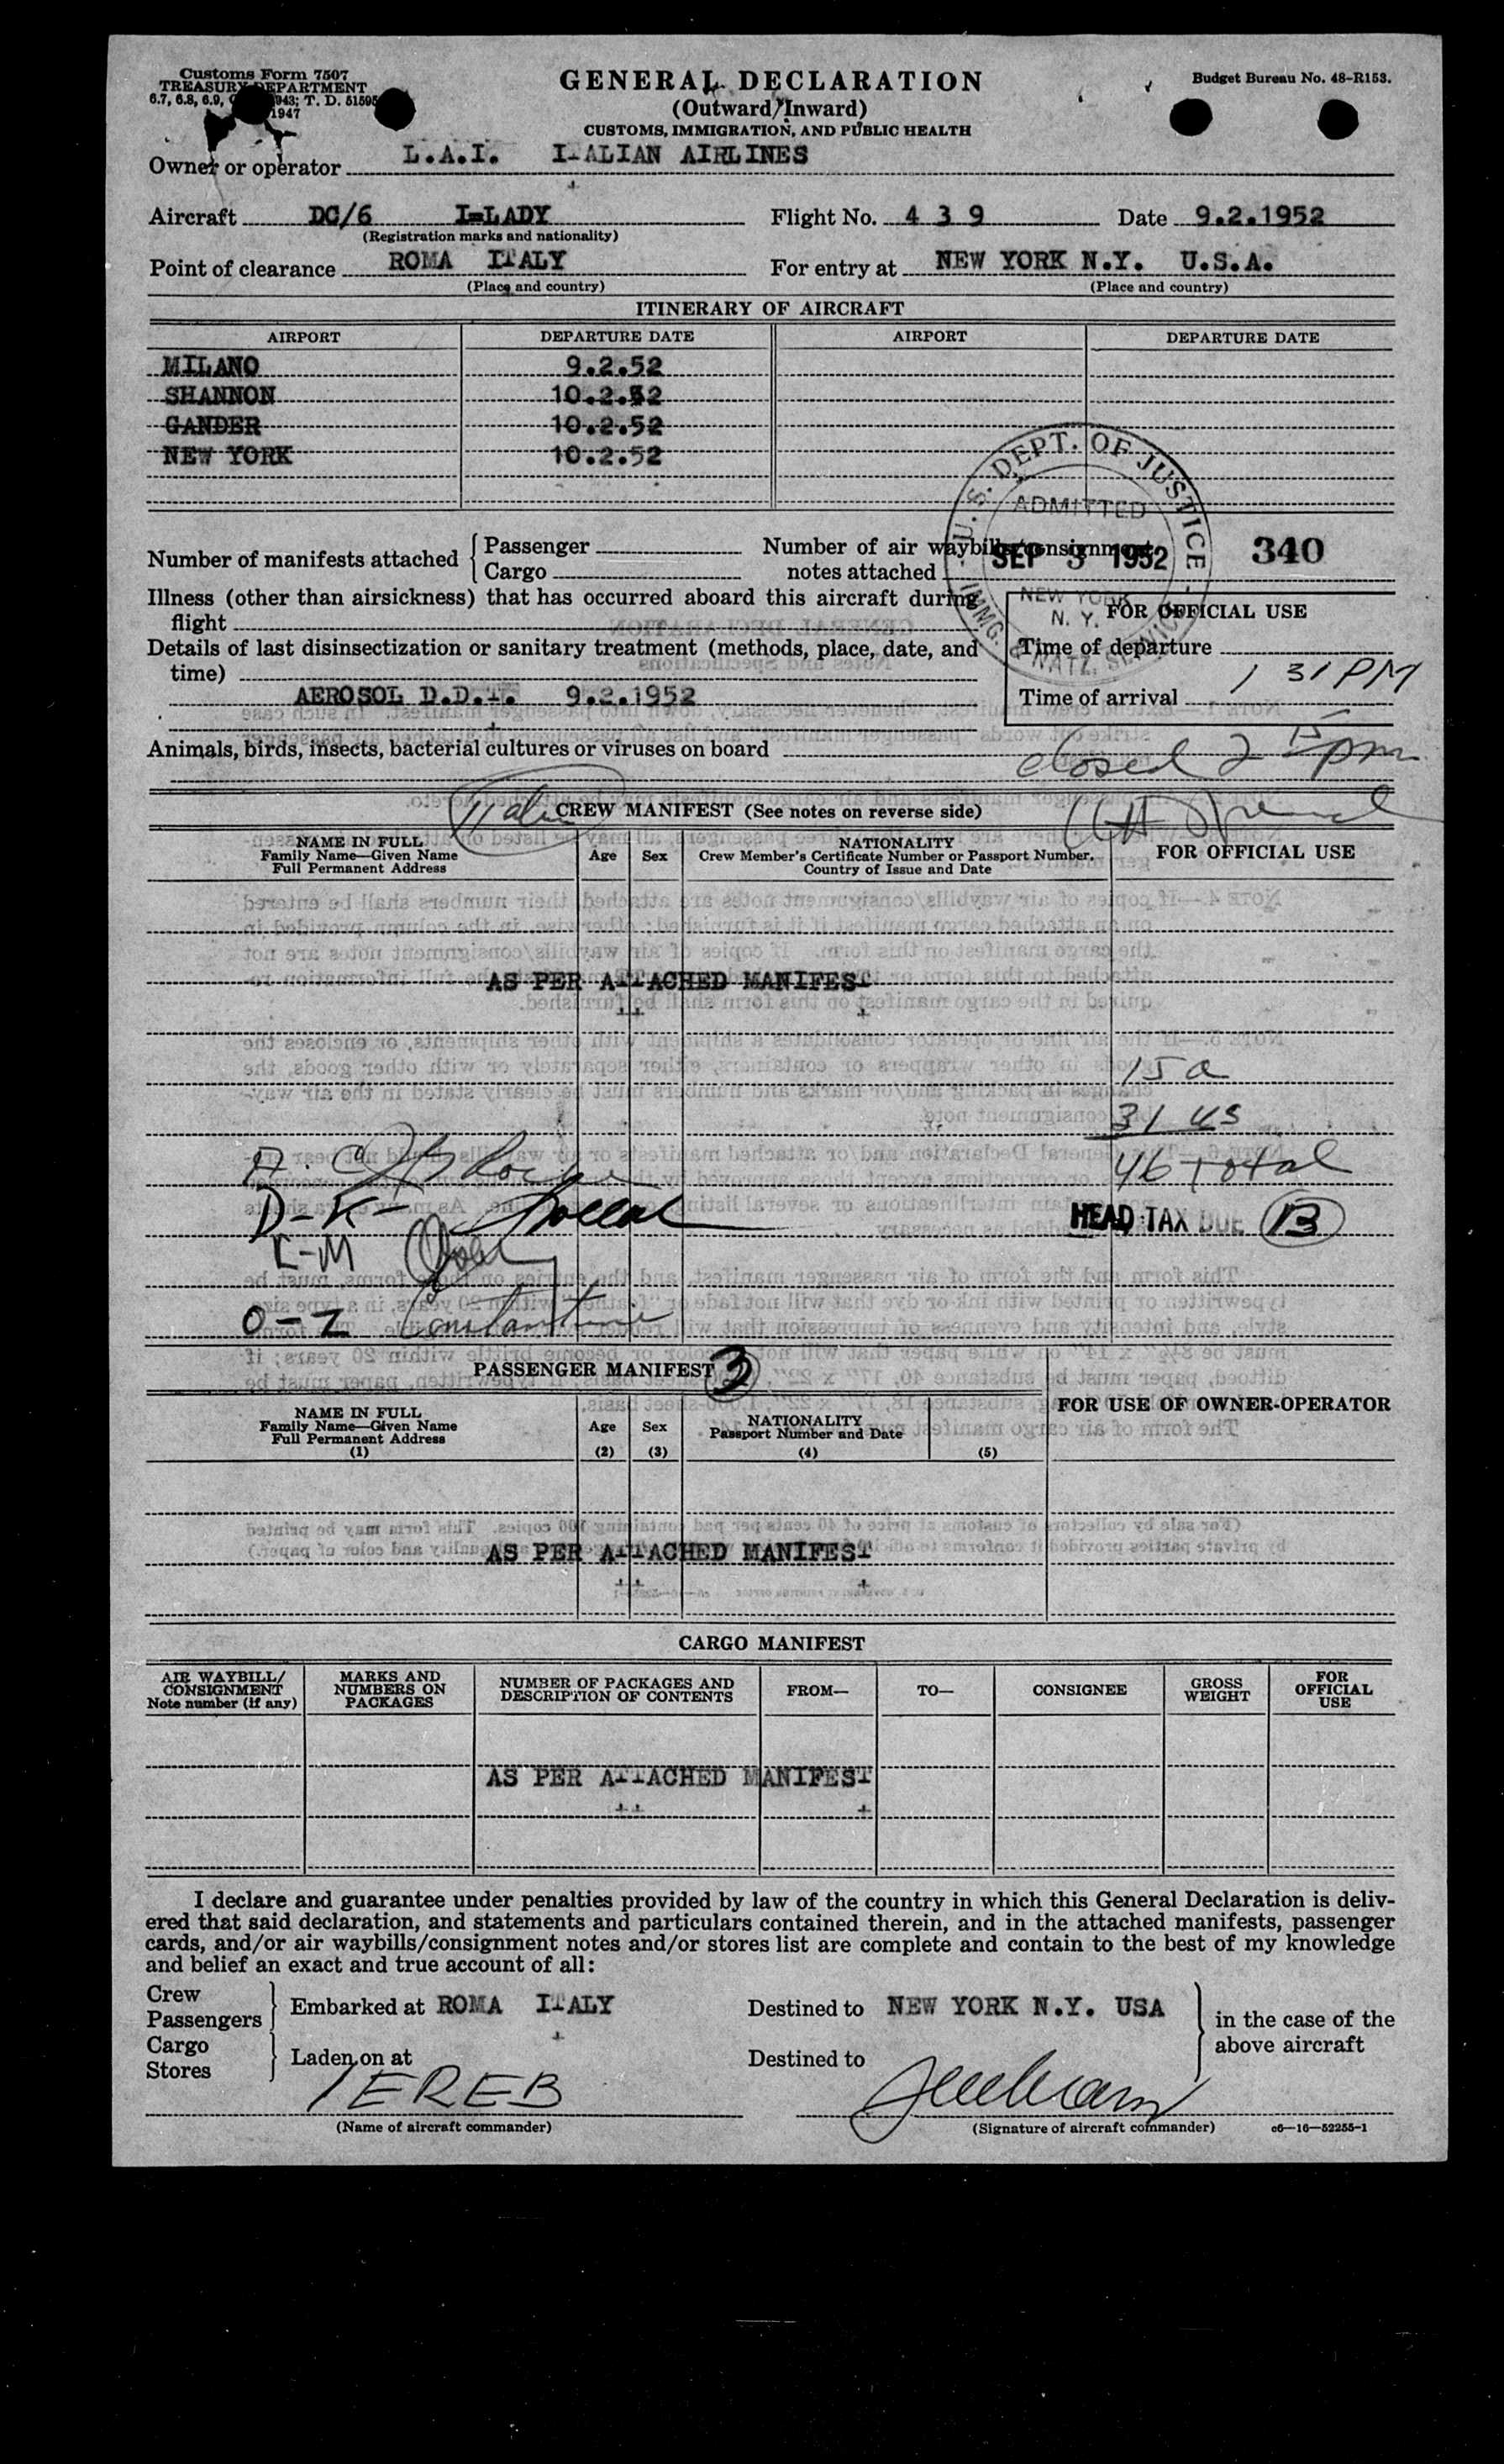 Customs Form 7507
TREASURY DEPARTMENT
6.7, 6.8, 6.9, 943; T. D. 51595
1947
GENERAL DECLARATION
(Outward/Inward)
CUSTOMS, IMMIGRATION, AND PUBLIC HEALTH
Budget Bureau No. 48-R153.
Owner or operator L.A.I. ITALIAN AIRLINES
Aircraft DC/6 I=LADY Flight No. 4 3 9 Date 9.2.1952
(Registration marks and nationality)
Point of clearance ROMA ITALY For entry at NEW YORK N.Y. U.S.A.
(Place and country) (Place and country)
ITINERARY OF AIRCRAFT
AIRPORT DEPARTURE DATE AIRPORT DEPARTURE DATE
MILANO 9.2.52
SHANNON 10.2.52
GANDER 10.2.52
NEW YORK 10.2.52
U.S. DEPT. OF JUSTICE
ADMITTED
SEP 3 1952
NEW YORK
N. Y.
IMMG. & NATZ. SERVICE
340
Number of manifests attached { Passenger Number of air waybills/consignment
Cargo notes attached
Illness (other than airsickness) that has occurred aboard this aircraft during
flight
FOR OFFICIAL USE
Details of last disinsectization or sanitary treatment (methods, place, date, and
time)
Time of departure
AEROSOL D.D.T. 9.2.1952
Time of arrival 1 31 PM
Animals, birds, insects, bacterial cultures or viruses on board
closed 2 15 pm
CREW MANIFEST (See notes on reverse side)
NAME IN FULL
Family Name—Given Name
Full Permanent Address
Age Sex
NATIONALITY
Crew Member's Certificate Number or Passport Number.
Country of Issue and Date
FOR OFFICIAL USE
AS PER ATTACHED MANIFEST
15 a
31 us
46 total
A-C
D-K-
L-M
HEAD TAX DUE 13
O-Z Constantine
PASSENGER MANIFEST 3
NAME IN FULL
Family Name—Given Name
Full Permanent Address
(1)
Age
(2)
Sex
(3)
NATIONALITY
Passport Number and Date
(4) (5)
FOR USE OF OWNER-OPERATOR
AS PER ATTACHED MANIFEST
CARGO MANIFEST
AIR WAYBILL/
CONSIGNMENT
Note number (if any)
MARKS AND
NUMBERS ON
PACKAGES
NUMBER OF PACKAGES AND
DESCRIPTION OF CONTENTS
FROM— TO— CONSIGNEE
GROSS
WEIGHT
FOR
OFFICIAL
USE
AS PER ATTACHED MANIFEST
I declare and guarantee under penalties provided by law of the country in which this General Declaration is deliv-
ered that said declaration, and statements and particulars contained therein, and in the attached manifests, passenger
cards, and/or air waybills/consignment notes and/or stores list are complete and contain to the best of my knowledge
and belief an exact and true account of all:
Crew
Passengers } Embarked at ROMA ITALY Destined to NEW YORK N.Y. USA
in the case of the
above aircraft
Cargo
Stores } Laden on at Destined to
(Name of aircraft commander) (Signature of aircraft commander) c6—16—52255-1